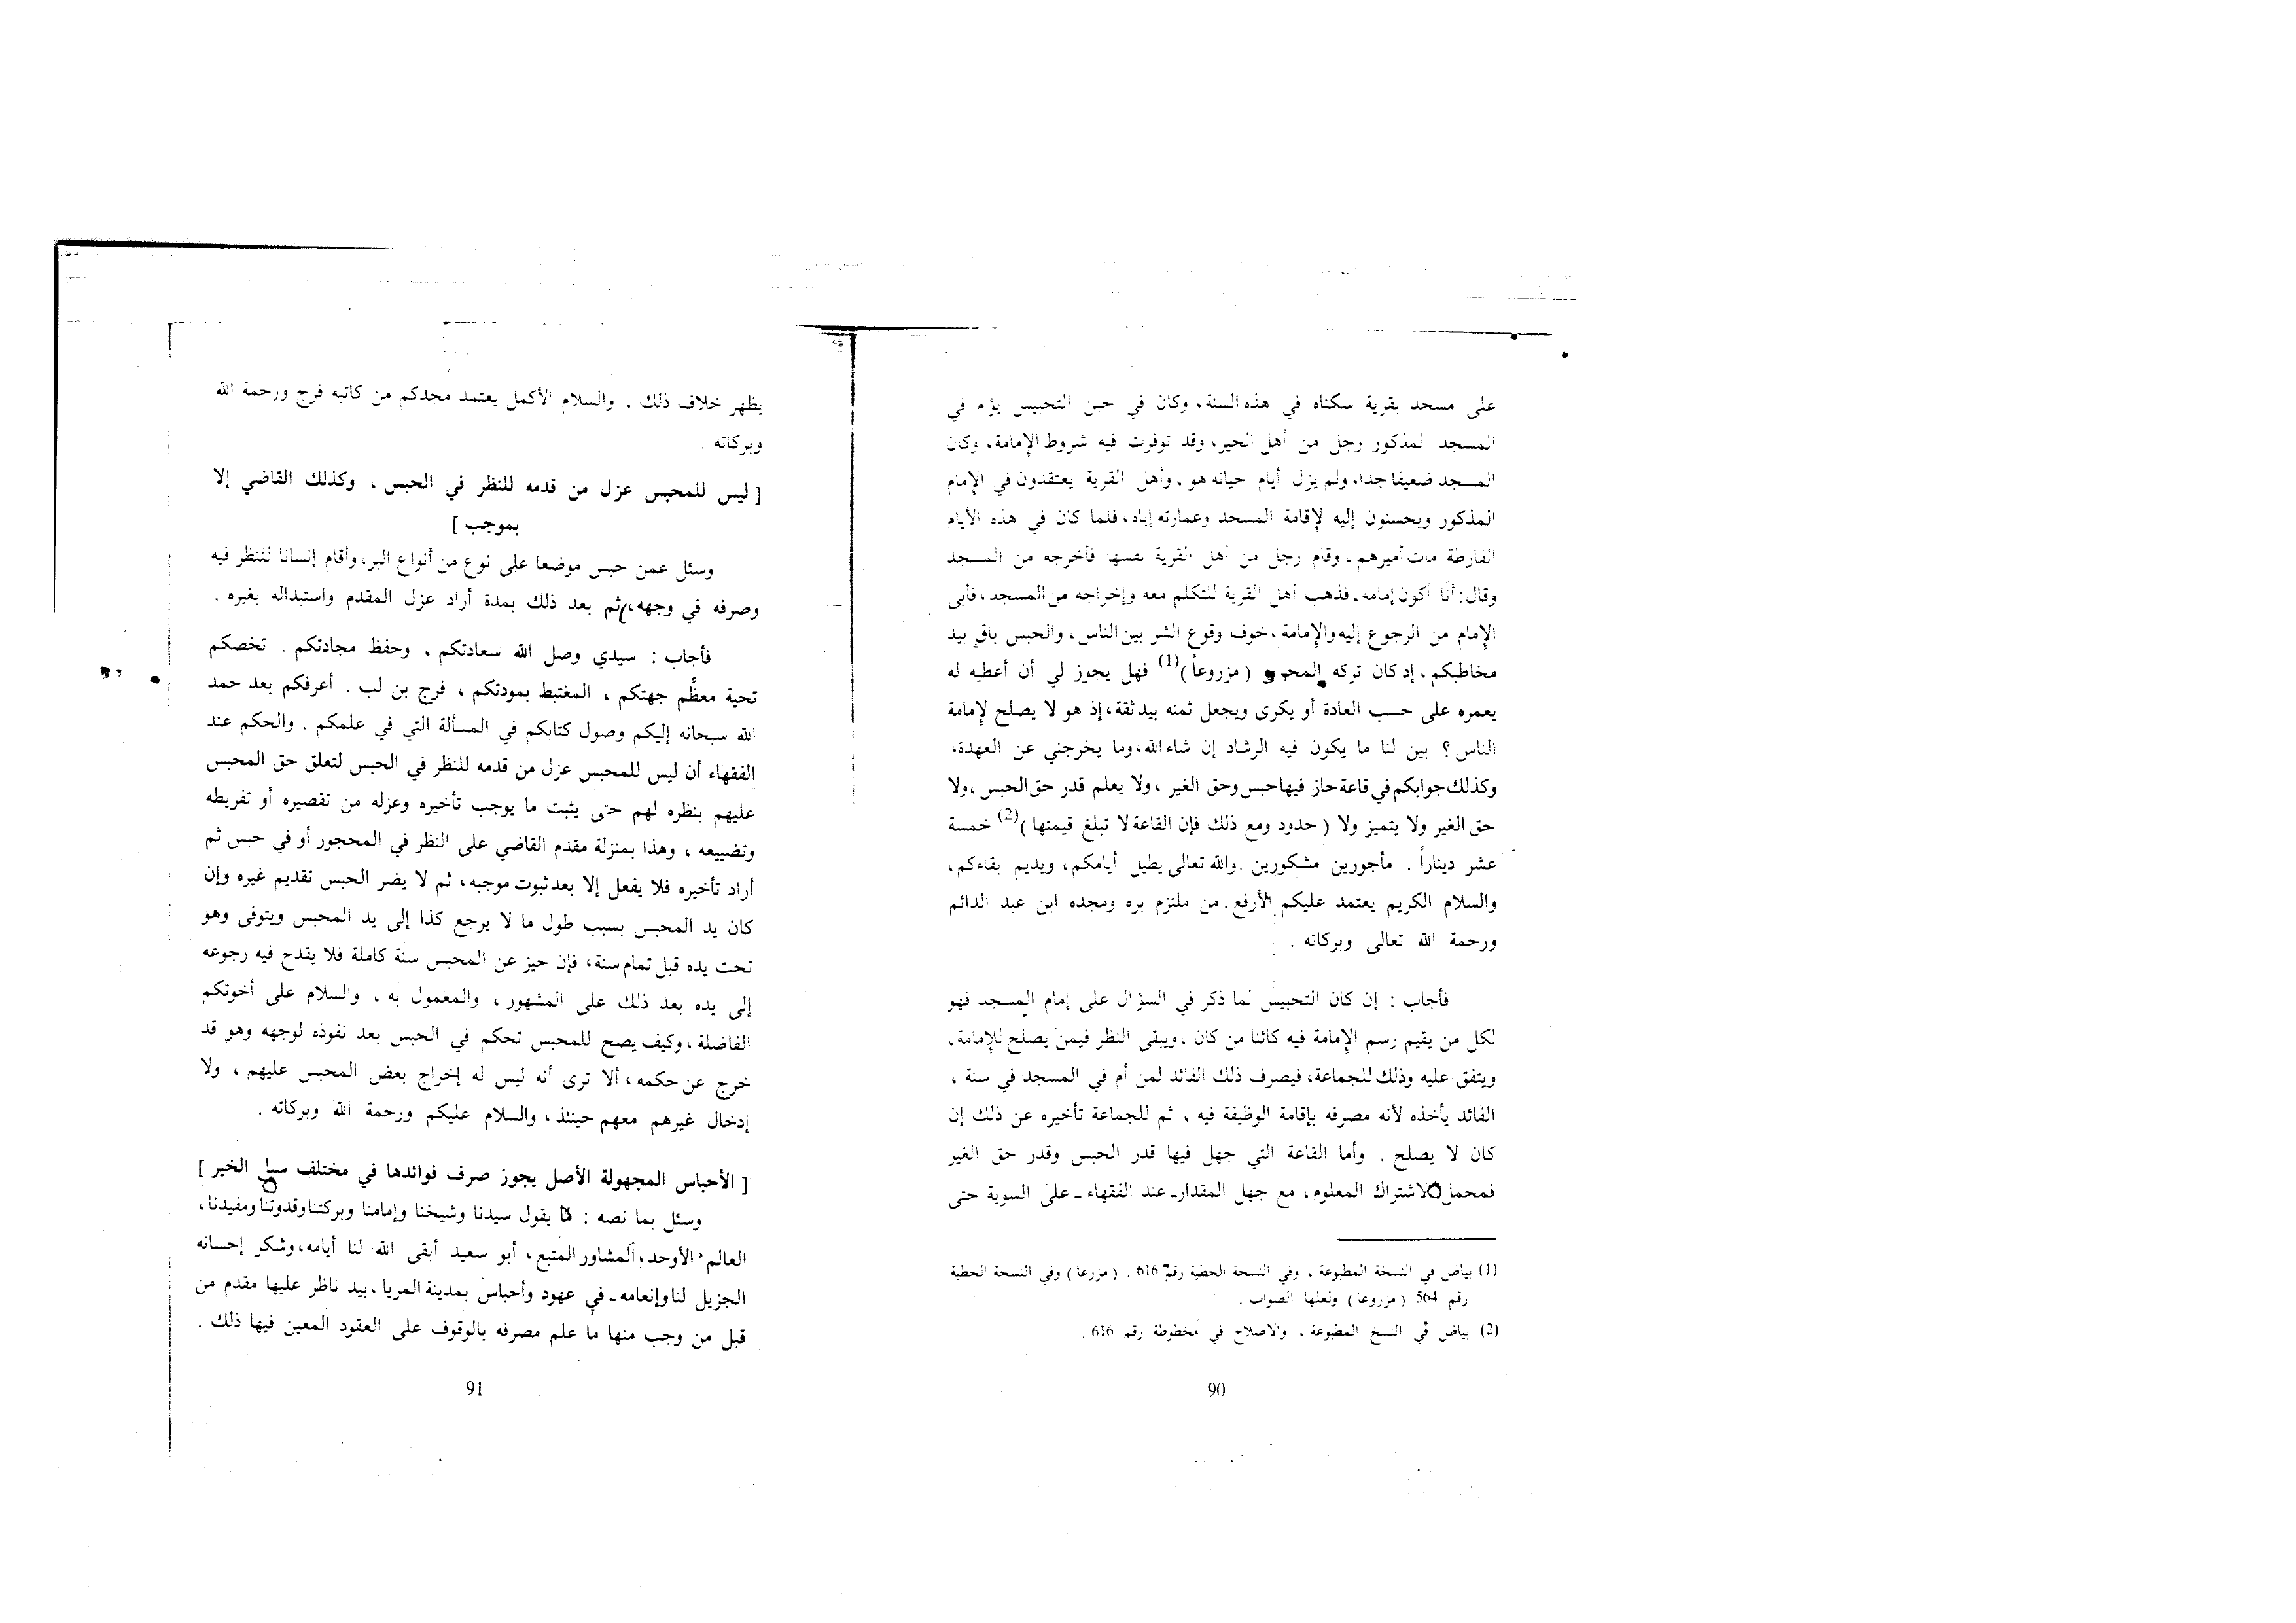 على مسجد بقرية سكناه في هذه السنة، وكان في حين التحبيس يؤم في
المسجد المذكور رجل من أهل الخير، وقد توفرت فيه شروط الإمامة، وكان
المسجد ضعيفا جدا، ولم يزل أيام حياته هو، وأهل القرية يعتقدون في الإمام
المذكور ويحسنون إليه لإقامة المسجد وعمارته إياه، فلما كان في هذه الأيام
الفارطة مات أميرهم، وقام رجل من أهل القرية نفسها فأخرجه من المسجد
وقال: أنا أكون إمامه، فذهب أهل القرية للتكلم معه وإخراجه من المسجد، فأبى
الإمام من الرجوع إليه والإمامة، خوف وقوع الشر بين الناس، والحبس باق بيد
مخاطبكم، إذ كان تركه (مزروعاً)(1) فهل يجوز لي أن أعطيه له
يعمره على حسب العادة أو يكرى ويجعل ثمنه بيد ثقة، إذ هو لا يصلح لإمامة
الناس؟ بين لنا ما يكون فيه الرشاد إن شاء الله، وما يخرجني عن العهدة،
وكذلك جوابكم في قاعة حاز فيها حبس وحق الغير، ولا يعلم قدر حق الحبس، ولا
حق الغير ولا يتميز ولا (حدود ومع ذلك فإن القاعة لا تبلغ قيمتها)(2) خمسة
عشر ديناراً. مأجورين مشكورين. والله تعالى يطيل أيامكم، ويديم بقاءكم،
والسلام الكريم يعتمد عليكم الأرفع. من ملتزم بره ومجده ابن عبد الدائم
ورحمة الله تعالى وبركاته.
فأجاب: إن كان التحبيس لما ذكر في السؤال على إمام المسجد فهو
لكل من يقيم رسم الإمامة فيه كائنا من كان، ويبقى النظر فيمن يصلح للإمامة،
ويتفق عليه وذلك للجماعة، فيصرف ذلك الفائد لمن أم في المسجد في سنة،
الفائد يأخذه لأنه مصرفه بإقامة الوظيفة فيه، ثم للجماعة تأخيره عن ذلك إن
كان لا يصلح. وأما القاعة التي جهل فيها قدر الحبس وقدر حق الغير
فمحمل الاشتراك المعلوم، مع جهل المقدار ـ عند الفقهاء ـ على السوية حتى
(1) بياض في النسخة المطبوعة، وفي النسخة الخطية رقم 616. (مزرعا) وفي النسخة الخطية
رقم 564 (مزروعا) ولعلها الصواب.
(2) بياض في النسخ المطبوعة، والاصلاح في مخطوطة رقم 616.
90
يظهر خلاف ذلك، والسلام الأكمل يعتمد مجدكم من كاتبه فرج ورحمة الله
وبركاته.
[ليس للمحبس عزل من قدمه للنظر في الحبس، وكذلك القاضي إلا
بموجب]
وسئل عمن حبس موضعا على نوع من أنواع البر، وأقام إنسانا للنظر فيه
وصرفه في وجهه، ثم بعد ذلك بمدة أراد عزل المقدم واستبداله بغيره.
فأجاب: سيدي وصل الله سعادتكم، وحفظ مجادتكم. تخصكم
تحية معظِّم جهتكم، المغتبط بمودتكم، فرج بن لب. أعرفكم بعد حمد
الله سبحانه إليكم وصول كتابكم في المسألة التي في علمكم. والحكم عند
الفقهاء أن ليس للمحبس عزل من قدمه للنظر في الحبس لتعلق حق المحبس
عليهم بنظره لهم حتى يثبت ما يوجب تأخيره وعزله من تقصيره أو تفريطه
وتضييعه، وهذا بمنزلة مقدم القاضي على النظر في المحجور أو في حبس ثم
أراد تأخيره فلا يفعل إلا بعد ثبوت موجبه، ثم لا يضر الحبس تقديم غيره وإن
كان يد المحبس بسبب طول ما لا يرجع كذا إلى يد المحبس ويتوفى وهو
تحت يده قبل تمام سنة، فإن حيز عن المحبس سنة كاملة فلا يقدح فيه رجوعه
إلى يده بعد ذلك على المشهور، والمعمول به، والسلام على أخوتكم
الفاضلة، وكيف يصح للمحبس تحكم في الحبس بعد نفوذه لوجهه وهو قد
خرج عن حكمه، ألا ترى أنه ليس له إخراج بعض المحبس عليهم، ولا
إدخال غيرهم معهم حينئذ، والسلام عليكم ورحمة الله وبركاته.
[الأحباس المجهولة الأصل يجوز صرف فوائدها في مختلف سبل الخير]
وسئل بما نصه: ما يقول سيدنا وشيخنا وإمامنا وبركتنا وقدوتنا ومفيدنا،
العالم الأوحد، المشاور المتبع، أبو سعيد أبقى الله لنا أيامه، وشكر إحسانه
الجزيل لنا وإنعامه ـ في عهود وأحباس بمدينة المريا، بيد ناظر عليها مقدم من
قبل من وجب منها ما علم مصرفه بالوقوف على العقود المعين فيها ذلك.
91